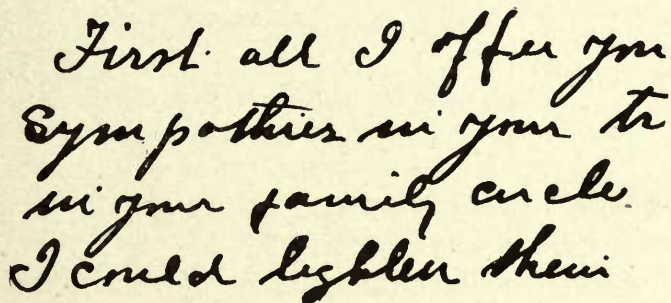 First all I offer you
Sympathies in your tr
in your family circle.
I could lighten them